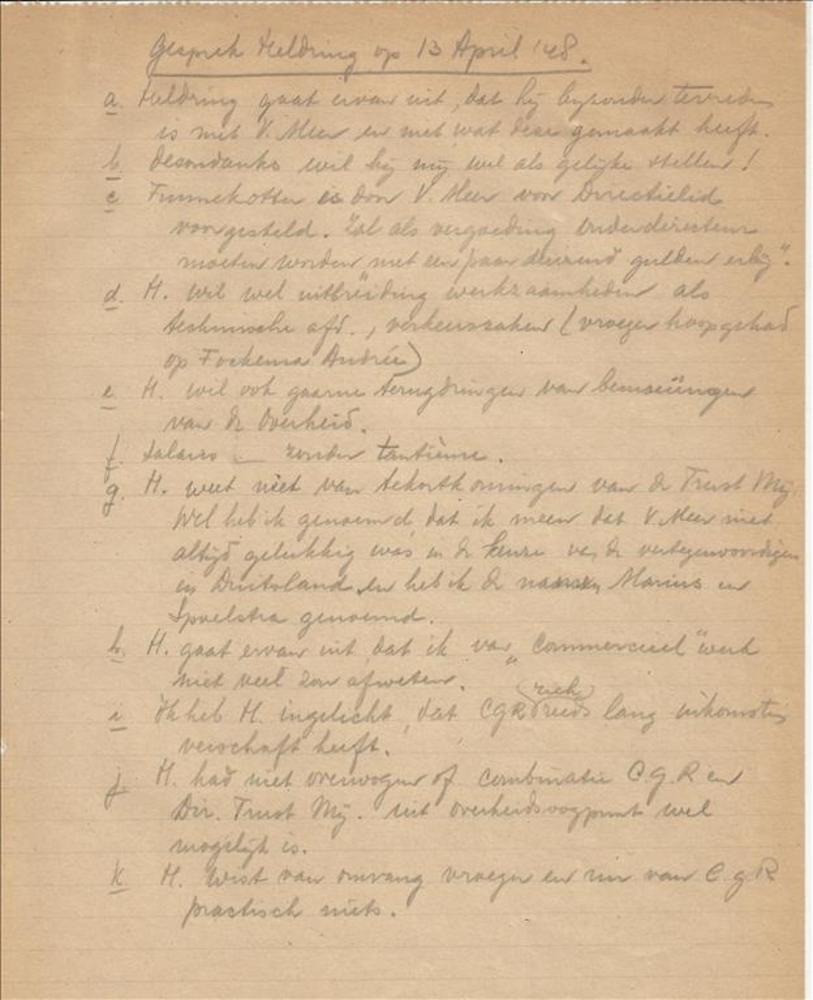 Gesprek Heldring op 13 April '48.
a. Heldring gaat ervan uit, dat hij byzonder tevreden
is met V. Meer en met wat deze gemaakt heeft.
b. desondanks wil hij mij wel als gelijke stellen!
c. Finnekotter is door V. Meer voor Directielid
voorgesteld. Zal als vergoeding onderdirecteur
moeten worden met een paar duizend gulden erbij".
d. H. wil wel uitbreiding werkzaamheden als
technische afd., verkeerszaken (vroeger hoop gehad
op Fockema Andreé)
e. H. wil ook gaarne terugdringen van bemoeiïngen
van de Overheid.
f. Salaris — zonder tantième.
g. H. weet niet van tekortkomingen van de Trust Mij.
Wel heb ik genoemd, dat ik meen dat V. Meer niet
altijd gelukkig was in de keuze van de vertegenwoordigers
in Duitsland en heb ik de namen Marius en
Spoelstra genoemd.
h. H. gaat ervan uit, dat ik van "Commercieel" werk
niet veel zou afweten.
i. Ik heb H. ingelicht, dat CGR (zich) reeds lang inkomsten
verschaft heeft.
j. H. had niet overwogen of combinatie C.G.R en
Dir. Trust Mij. uit overheidsoogpunt wel
mogelijk is.
k. H. wist van omvang vroeger en nu van C.G.R
practisch niets.